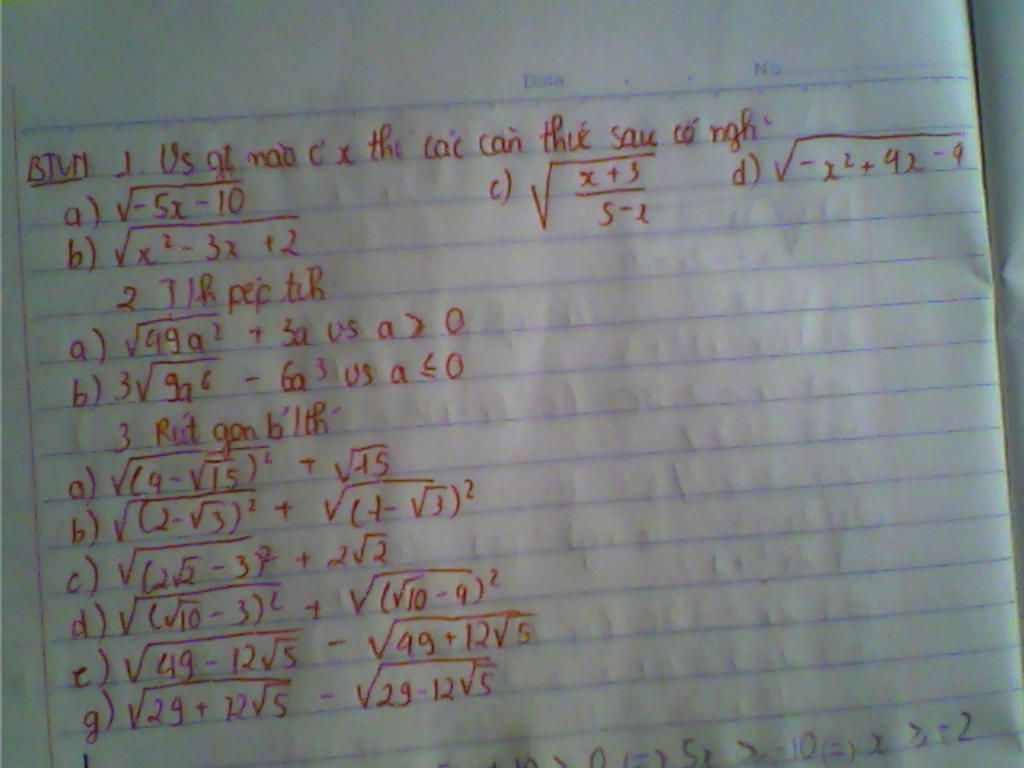 Date No
BTVN 1. Vs gt nào c' x thì các căn thức sau có ngh:
a) √-5x - 10 c) √x + 3 / 5-x d) √-x² + 4x - 4
b) √x² - 3x + 2
2
a) √49a² + 3a vs a ≥ 0
b) 3√9a⁶ - 6a³ vs a ≤ 0
3 Rút gọn b'/th
a) √(4-√15)² + √15
b) √(2-√3)² + √(1-√3)²
c) √(2√2 - 3)² + 2√2
d) √(√10 - 3)² + √(√10 - 4)²
e) √49 - 12√5 - √49 + 12√5
g) √29 + 12√5 - √29-12√5
0 (=) 5x ≥ -10 (=) x ≥ -2